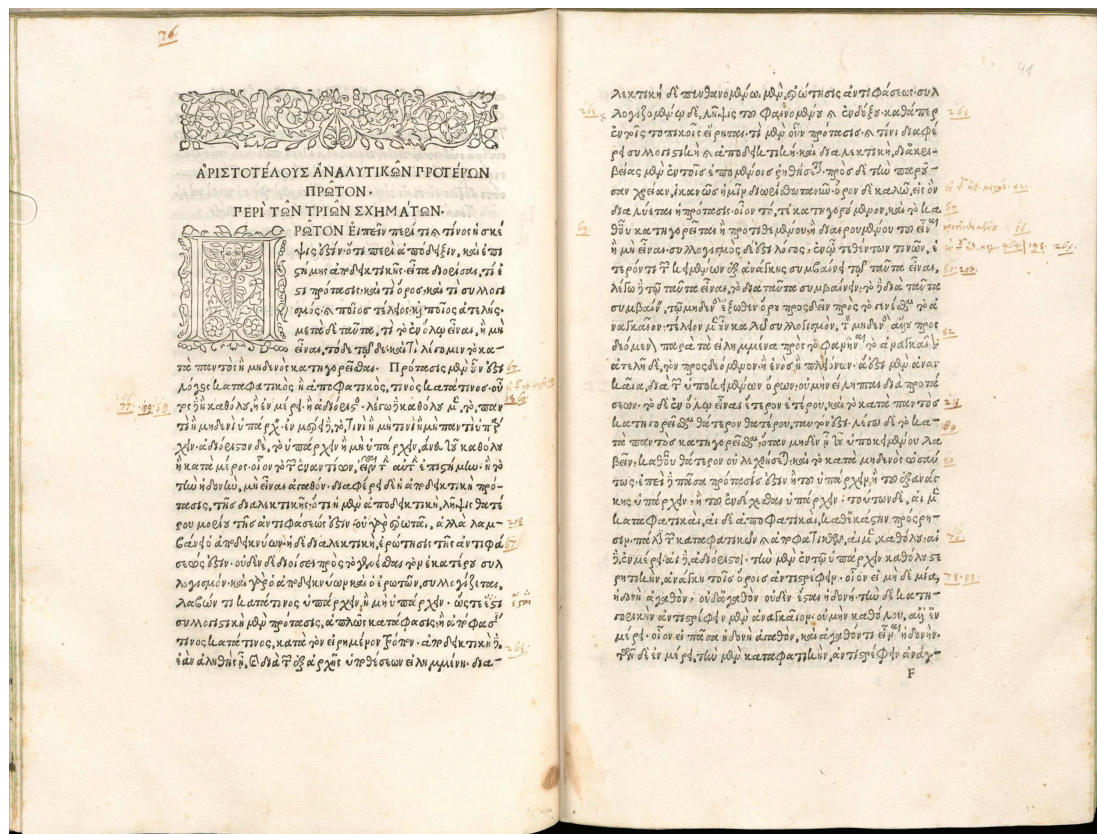 76.
ἈΡΙΣΤΟΤΈΛΟΥΣ ἈΝΑΛΥΤΙΚΩ͂Ν ΠΡΟΤΈΡΩΝ
ΠΡΩ͂ΤΟΝ·
ΠΕΡῚ ΤΩ͂Ν ΤΡΙΩ͂Ν ΣΧΗΜΆΤΩΝ·
ΠΡΩ͂ΤΟΝ Εἰπεῖν περὶ τί καὶ τίνος ἡ σκέ
ψις ἐστίν· ὅτι περὶ ἀπόδειξιν, καὶ ἐπι
στήμης ἀποδεικτικῆς· εἶτα διορίσαι, τί ἐ
στι πρότασις· καὶ τί ὅρος· καὶ τί συλλογι
σμός· καὶ ποῖος τέλειος· καὶ ποῖος ἀτελής·
μετὰ δὲ ταῦτα, τί τὸ ἐν ὅλῳ εἶναι, ἢ μὴ
εἶναι, τόδε τῷδε· καὶ τί λέγομεν τὸ κα-
τὰ παντὸς ἢ μηδενὸς κατηγορεῖσθαι· Πρότασις μὲν οὖν ἐστὶ 67
λόγος καταφατικὸς ἢ ἀποφατικὸς, τινὸς κατά τινος· οὗ
77. τος δὲ ἢ καθόλου, ἢ ἐν μέρει, ἢ ἀδιόριστος· λέγω δὲ καθόλου μὲν, τὸ, παν
τὶ ἢ μηδενὶ ὑπάρχειν· ἐν μέρει δὲ, τὸ, τινὶ ἢ μὴ τινὶ ἢ μὴ παντὶ ὑπάρ
χειν· ἀδιόριστον δὲ, τὸ ὑπάρχειν ἢ μὴ ὑπάρχειν, ἄνευ τοῦ καθόλου
ἢ κατὰ μέρος· οἷον τὸ τῶν ἐναντίων, εἶναι τὴν αὐτὴν ἐπιστήμην· ἢ τὸ
τὴν ἡδονὴν, μὴ εἶναι ἀγαθόν· διαφέρει δὲ ἡ ἀποδεικτικὴ πρό-
τασις, τῆς διαλεκτικῆς· ὅτι ἡ μὲν ἀποδεικτικὴ, λῆψις θατέ
ρου μορίου τῆς ἀντιφάσεώς ἐστιν· οὐ γὰρ ἐρωτᾷ, ἀλλὰ λαμ-
βάνει ὁ ἀποδεικνύων· ἡ δὲ διαλεκτικὴ, ἐρώτησις τῆς ἀντιφά 67
σεώς ἐστιν· οὐδὲν δὲ διοίσει πρὸς τὸ γενέσθαι τὸν ἑκατέρου συλ
λογισμόν· καὶ γὰρ ὁ ἀποδεικνύων καὶ ὁ ἐρωτῶν, συλλογίζεται,
λαβών τι κατά τινος ὑπάρχειν, ἢ μὴ ὑπάρχειν· ὥστε ἔστι
συλλογιστικὴ μὲν πρότασις, ἁπλῶς κατάφασις, ἢ ἀπόφασις
τινὸς κατά τινος, κατὰ τὸν εἰρημένον τρόπον· ἀποδεικτικὴ δὲ,
ἐὰν ἀληθὴς ᾖ, καὶ διὰ τῶν ἐξ ἀρχῆς ὑποθέσεων εἰλημμένη· δια- 265.
41
λεκτικὴ δὲ πυνθανομένῳ μὲν, ἐρώτησις ἀντιφάσεως· συλ
λογιζομένῳ δὲ, λῆψις τοῦ φαινομένου καὶ ἐνδόξου· καθάπερ 265
ἐν τοῖς τοπικοῖς εἴρηται· τί μὲν οὖν πρότασις· καὶ τίνι διαφέ
ρει συλλογιστικὴ καὶ ἀποδεικτικὴ· καὶ διαλεκτικὴ, δι’ ἀκρι-
βείας μὲν ἐν τοῖς ἑπομένοις ῥηθήσεται· πρὸς δὲ τὴν παροῦ-
σαν χρείαν, ἱκανῶς ἡμῖν διωρίσθω τανῦν· ὅρον δὲ καλῶ, εἰς ὃν
διαλύεται ἡ πρότασις· οἷον τό, τε κατηγορούμενον, καὶ τὸ κα
69. θ’ οὗ κατηγορεῖται ἢ προστιθεμένου, ἢ διαιρουμένου τοῦ εἶναι
ἢ μὴ εἶναι· συλλογισμὸς δέ ἐστι λόγος, ἐν ᾧ τεθέντων τινῶν, ἕ
τερόν τι τῶν κειμένων ἐξ ἀνάγκης συμβαίνει τῷ ταῦτα εἶναι,
λέγω δὲ τῷ ταῦτα εἶναι, τὸ διὰ ταῦτα συμβαίνειν· τὸ δὲ διὰ ταῦτα
συμβαίνειν, τὸ μηδενὸς ἔξωθεν ὅρου προσδεῖν πρὸς τὸ γενέσθαι τὸ ἀ
ναγκαῖον· τέλειον μὲν οὖν καλῶ συλλογισμὸν, τὸν μηδενὸς ἄλλου προς 82
δεόμενον παρὰ τὰ εἰλημμένα πρὸς τὸ φανῆναι τὸ ἀναγκαῖον·
ἀτελῆ δὲ, τὸν προσδεόμενον ἢ ἑνὸς ἢ πλειόνων· ἃ ἐστὶ μὲν ἀναγ
καῖα, διὰ τῶν ὑποκειμένων ὅρων· οὐ μὴν εἴληπται διὰ προτά
σεων· τὸ δὲ ἐν ὅλῳ εἶναι ἕτερον ἑτέρου, καὶ τὸ κατὰ παντὸς
κατηγορεῖσθαι θατέρου θάτερον, ταυτόν ἐστι· λέγω δὲ τὸ κα- 80
τὰ παντὸς κατηγορεῖσθαι, ὅταν μηδὲν ᾖ τοῦ ὑποκειμένου λα
βεῖν, καθ’ οὗ θάτερον οὐ λεχθήσεται· καὶ τὸ κατὰ μηδενὸς ὡσαύ
τως· ἐπεὶ δὲ πᾶσα πρότασίς ἐστιν ἢ τοῦ ὑπάρχειν, ἢ τοῦ ἐξ ἀνάγ
κης ὑπάρχειν· ἢ τοῦ ἐνδέχεσθαι ὑπάρχειν· τούτων δὲ, αἱ μὲν
καταφατικαὶ, αἱ δὲ ἀποφατικαὶ, καθ’ ἑκάστην πρόσρη-
σιν· πάλιν δὲ τῶν καταφατικῶν καὶ ἀποφατικῶν, αἱ μὲν, καθόλου, αἱ
δὲ, ἐν μέρει· αἱ δὲ, ἀδιόριστοι· τὴν μὲν ἐν τῷ ὑπάρχειν καθόλου στε
ρητικὴν, ἀνάγκη τοῖς ὅροις ἀντιστρέφειν· οἷον εἰ μηδὲ μία,
ἡδονὴ ἀγαθὸν, οὐδ’ ἀγαθὸν οὐδὲν ἔσται ἡδονή· τὴν δὲ κατη-
γορικὴν ἀντιστρέφειν μὲν ἀναγκαῖον· οὐ μὴν καθόλου, ἀλλ’ ἐν
μέρει· οἷον εἰ πᾶσα ἡδονὴ ἀγαθὸν, καὶ ἀγαθόν τι εἶναι ἡδονήν·
τῶν δὲ ἐν μέρει, τὴν μὲν καταφατικὴν, ἀντιστρέφειν ἀνάγ-
F